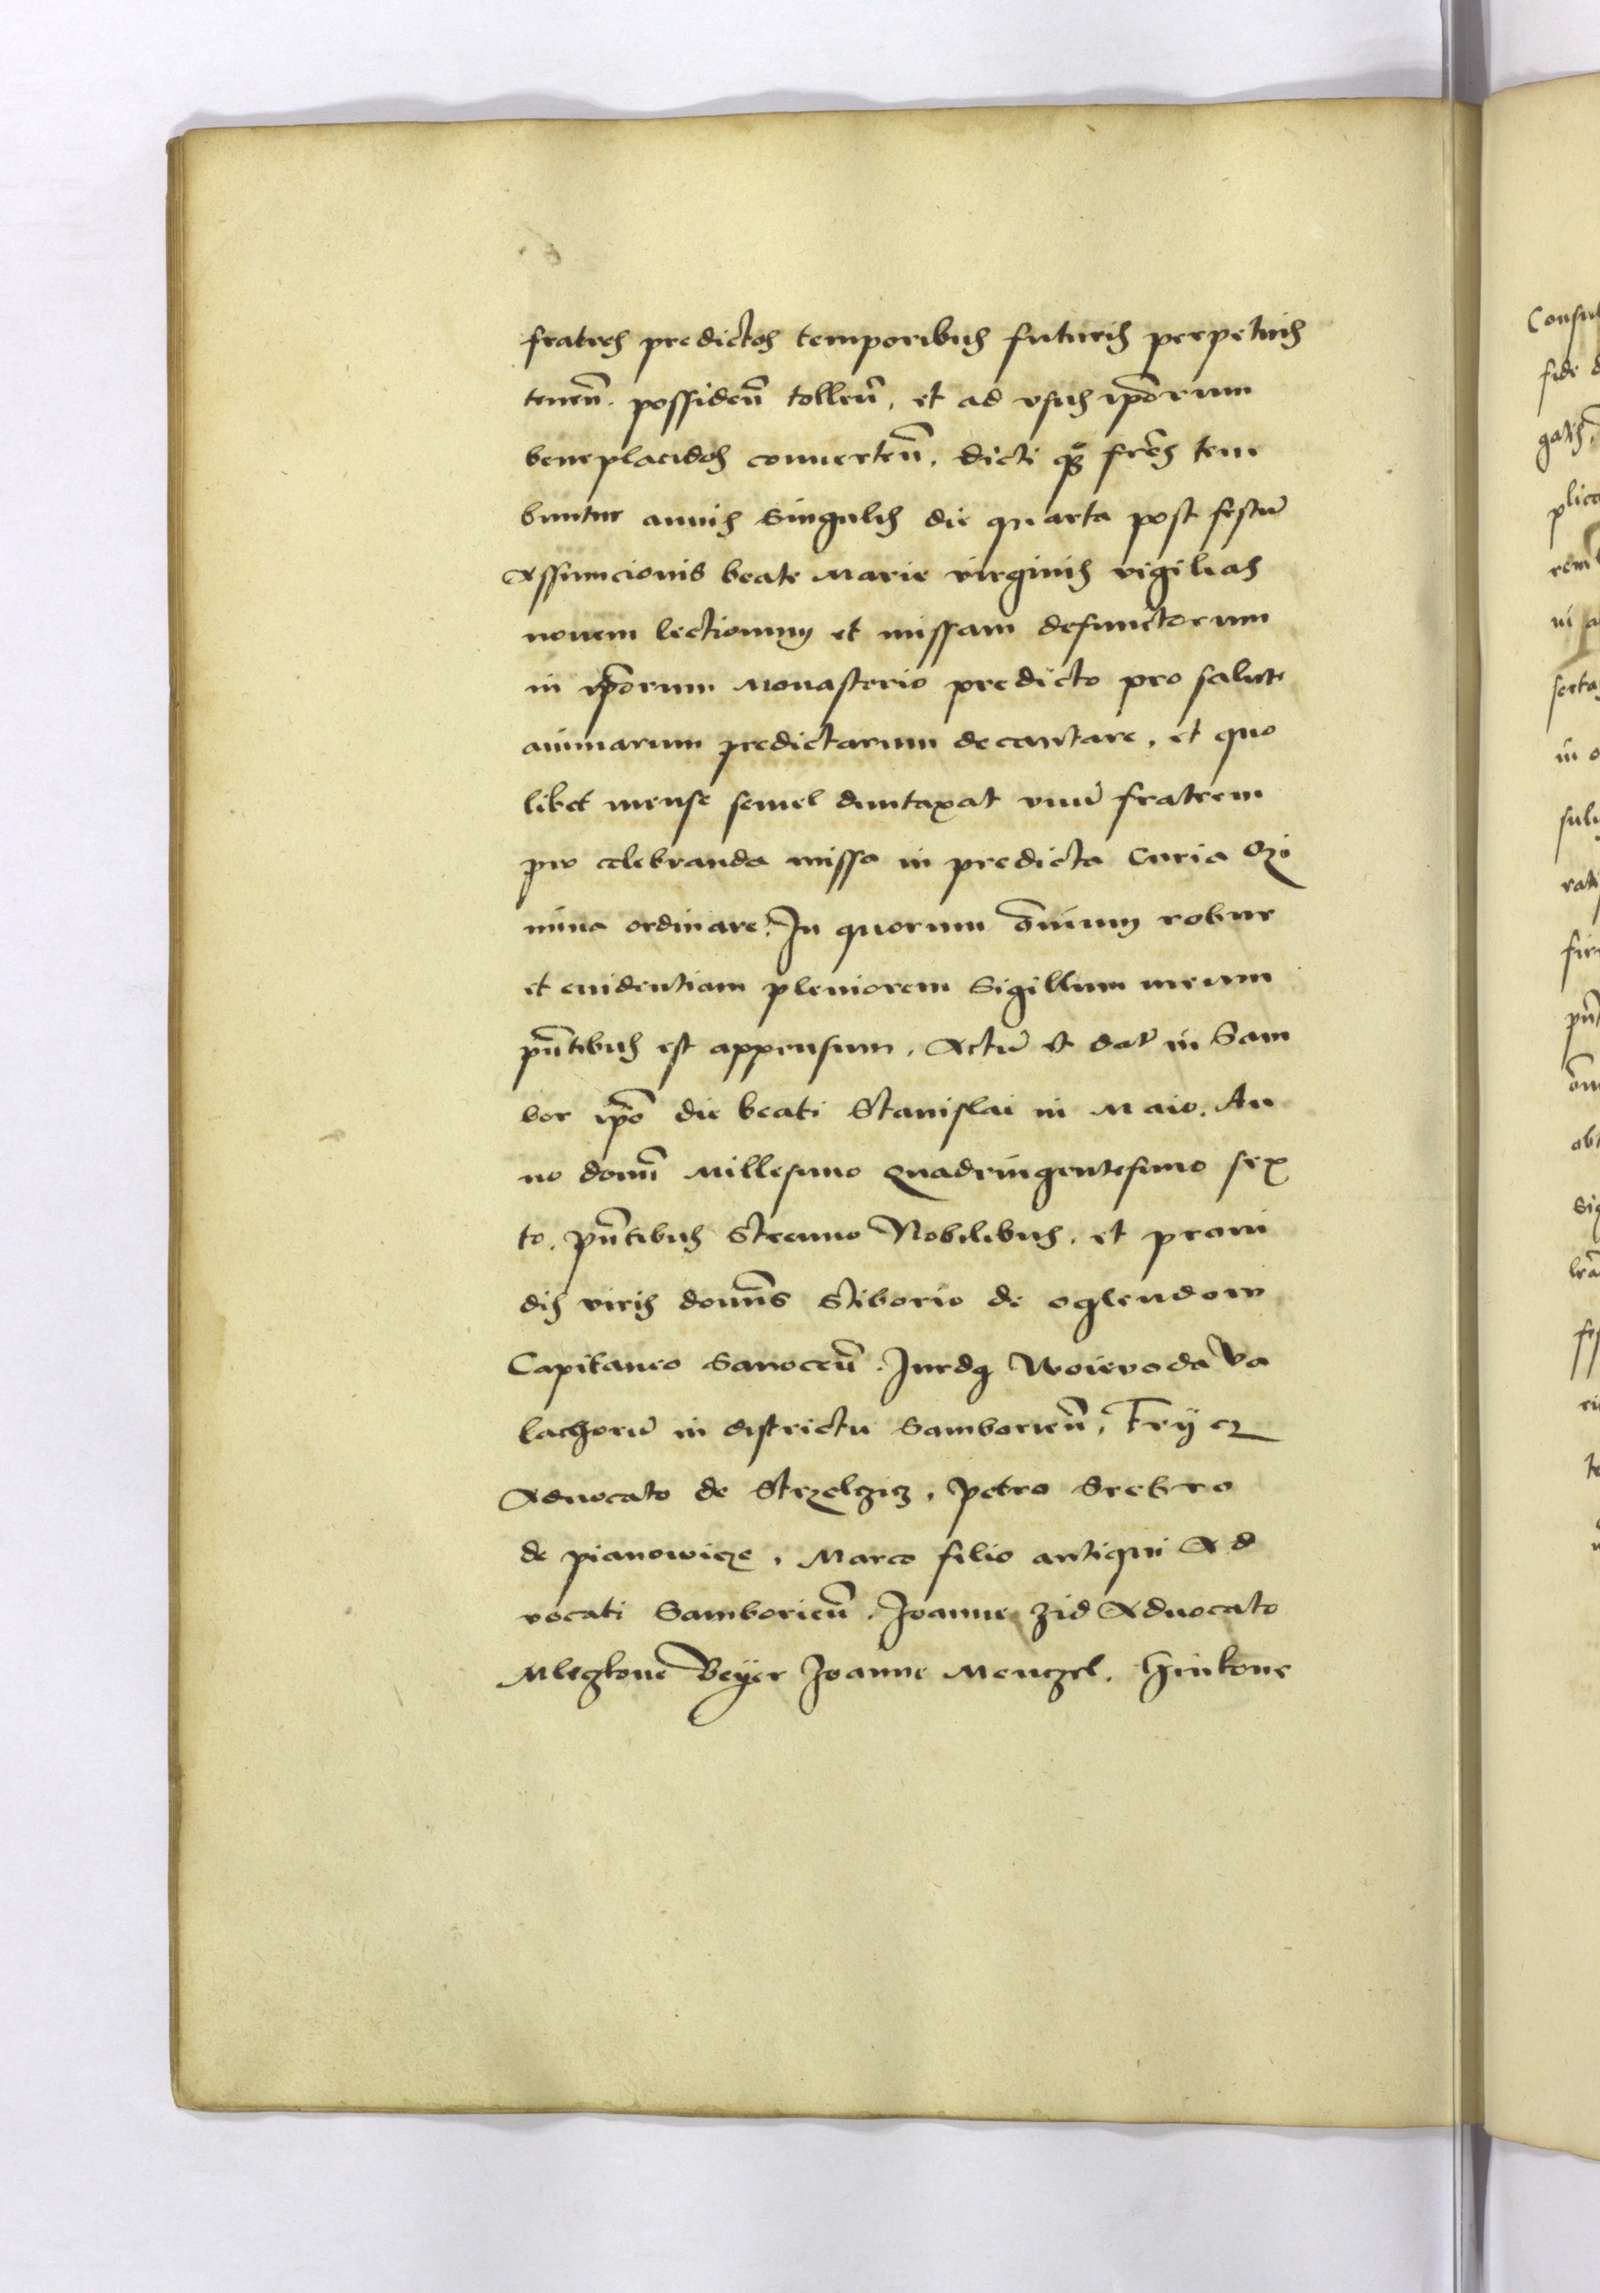 fratres predictos temporibus futuris perpetuis
teneñ. possideñ tolleñ, et ad vsus ip̄orum
beneplacidos conuerteñ. dicti qȝ fr̄es tene
buntur annis singulis die quarta post festū
Assumcionis beate Marie virginis vigilias
nouem lectionum et missam defunctorum
in ip̄orum Monasterio predicto pro salute
animarum predictarum decantare, et quo
libet mense semel duntaxat vnū fratrem
pro celebranda missa in predicta Curia Ozi
mina ordinare. In quorum om̄ium robur
et euidentiam pleniorem Sigillum meum
pn̄tibus est appensum. Actū et dat̄ in Sam
bor ip̄o die beati Stanislai in Maio. An
no domī Millesimo Quadringentesimo sex
to. pn̄tibus Strenuo Nobilibus, et proui
dis viris domīs Stiborio de oglendow
Capitaneo Sanoceñ. Jurdg Woievoda Va
lachorū in districtu Samborieñ, Frycz
Aduocato de Strzelczicz, petro Srebro
de pianowicze, Marco filio antiqui Ad
vocati Samborieñ. Joanne Zid Aduocato
Mleczkone Beyer Joanne Menczel. Hinkone
Consul
fide d
gatis,
plica
rem
in a
serta
in o
rati
fir
pn̄t
om̄
obt
sig